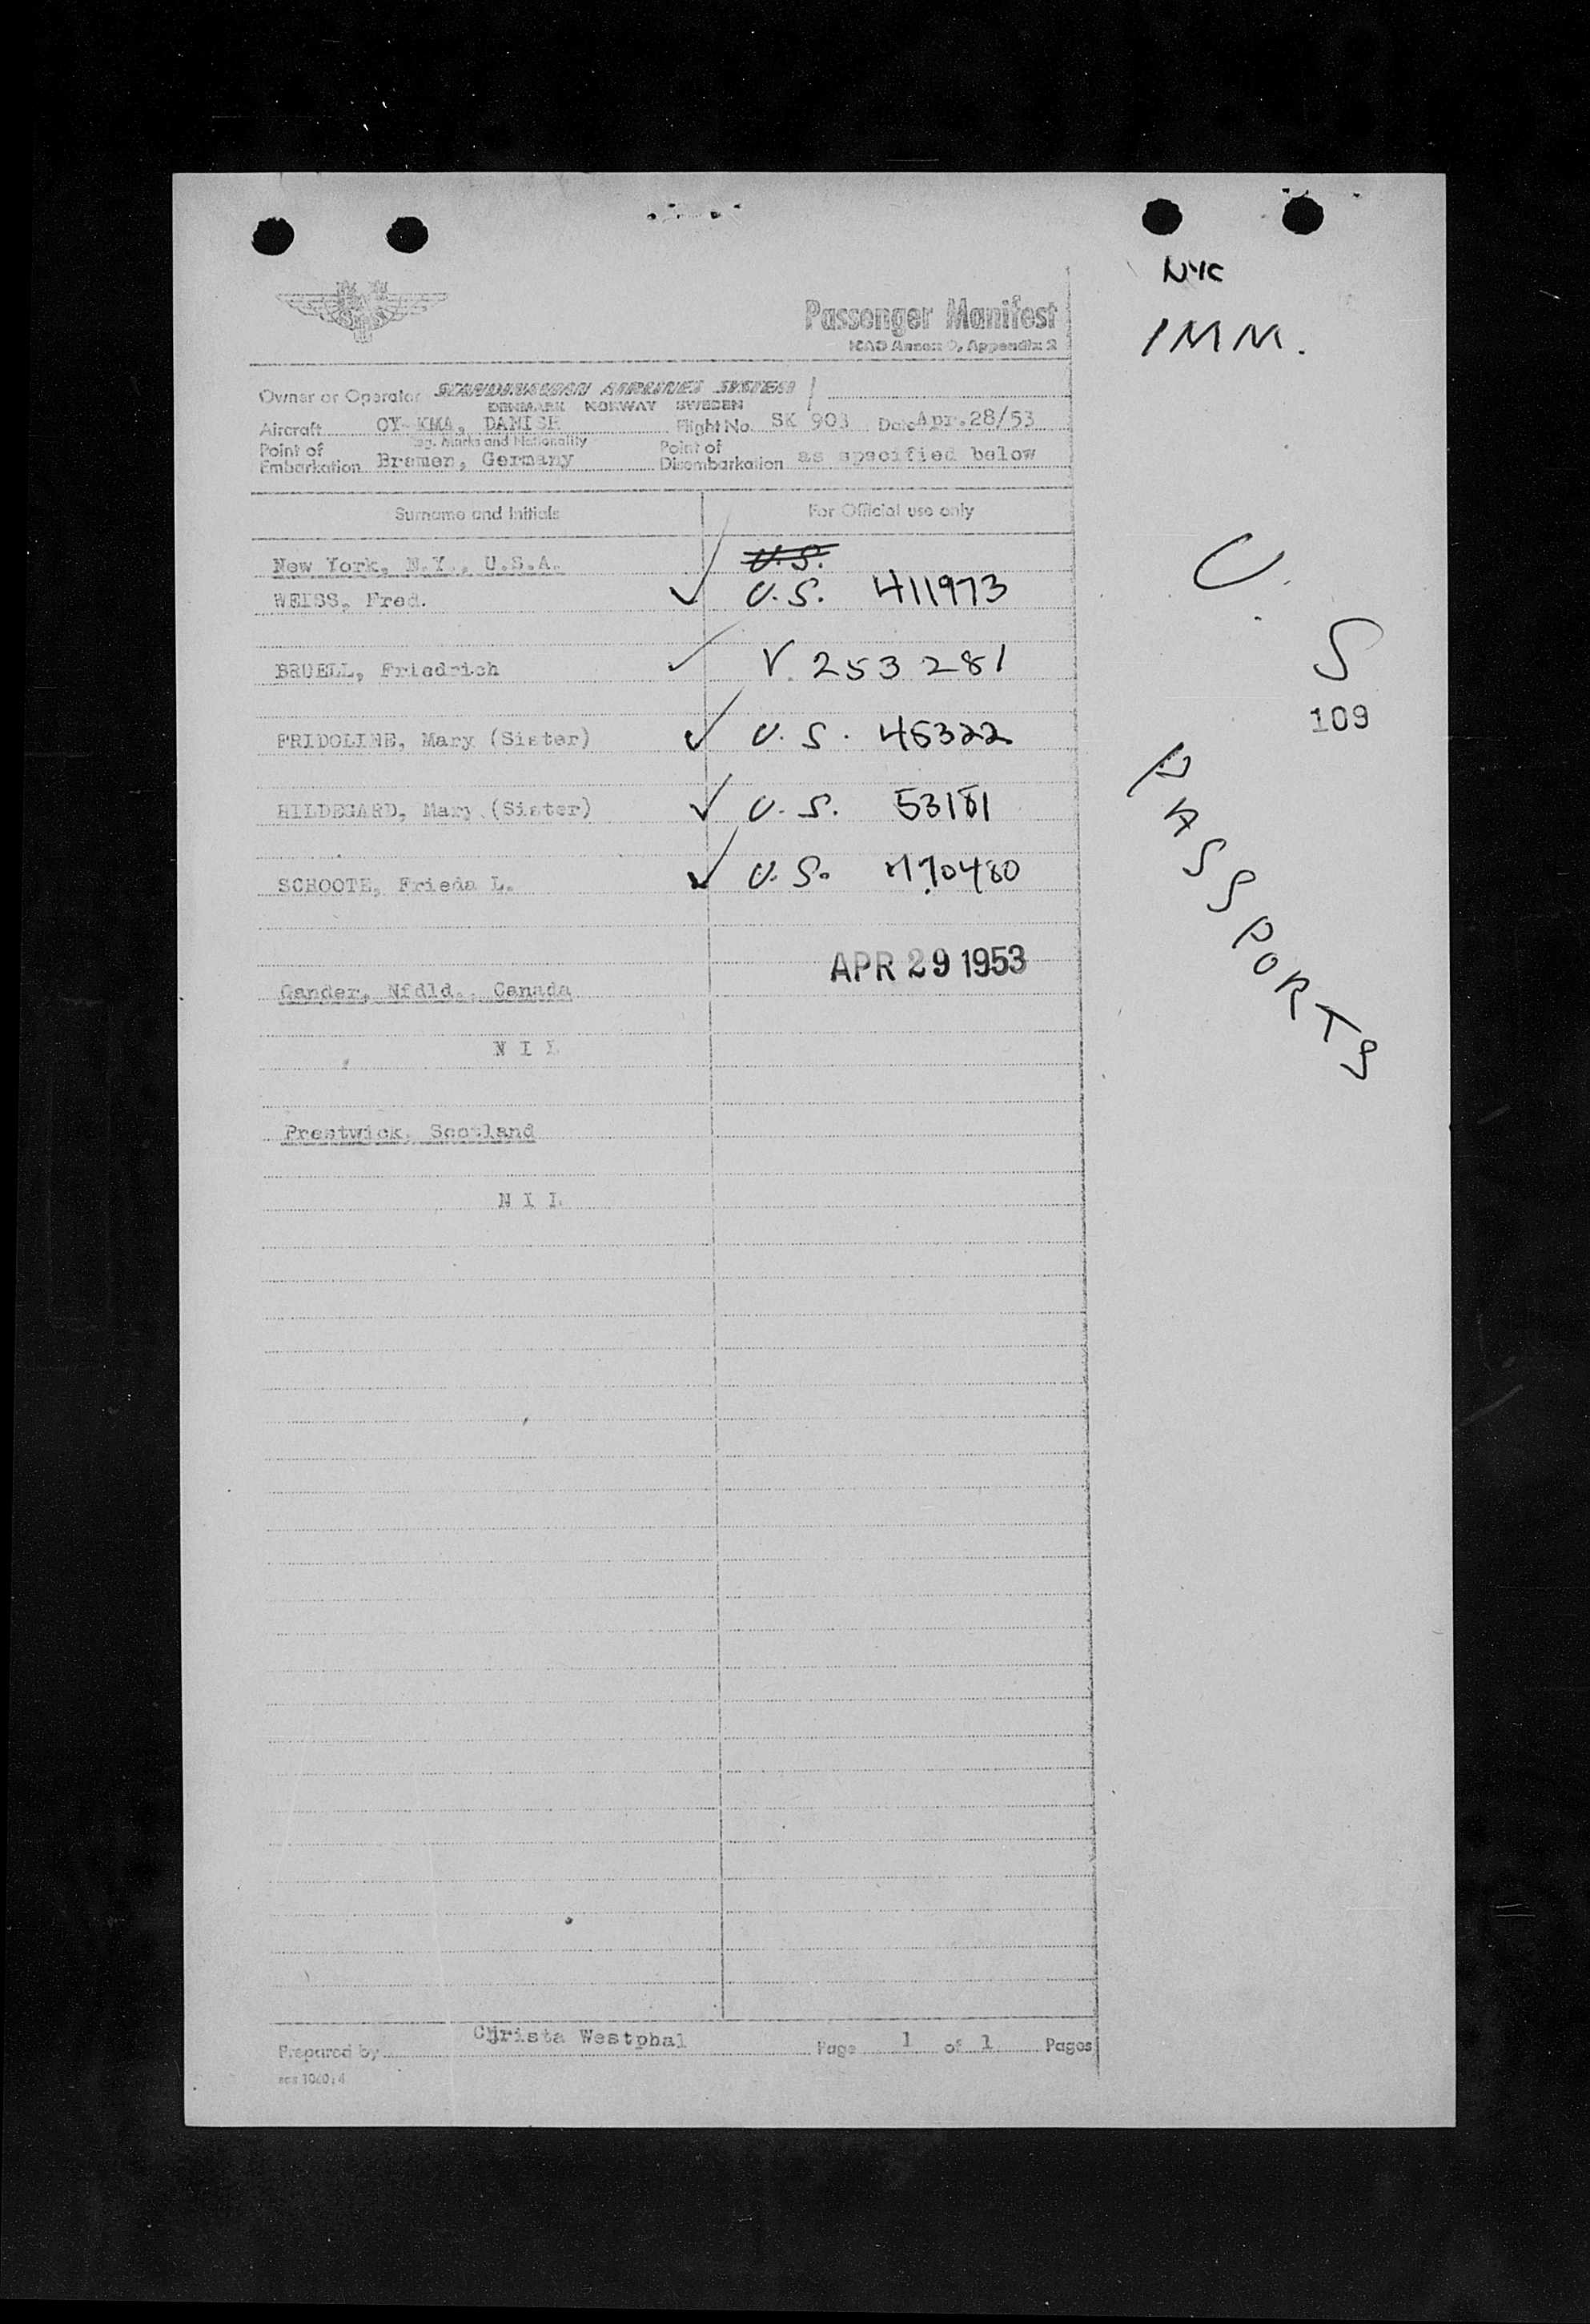 NYC
IMM.
Passenger Manifest
ICAO Annex 9, Appendix 2
Owner or Operator SCANDINAVIAN AIRLINES SYSTEM
DENMARK NORWAY SWEDEN
Aircraft OY-KMA, DANISH Flight No. SK 903 Date Apr.28/53
Reg. Marks and Nationality
Point of Embarkation Bremen, Germany Point of Disembarkation as specified below
Surname and Initials For Official use only
New York, N.Y., U.S.A. U.S.
WEISS, Fred. U.S. 411973
BRUELL, Friedrich V. 253 281
FRIDOLINE, Mary (Sister) U.S. 45322
HILDEGARD, Mary (Sister) U.S. 53181
SCHOOTE, Frieda L. U.S. 70480
U.S
109
PASSPORTS
APR 29 1953
Gander, Nfdld., Canada
N I L
Prestwick, Scotland
N I L
Prepared by Christa Westphal Page 1 of 1 Pages